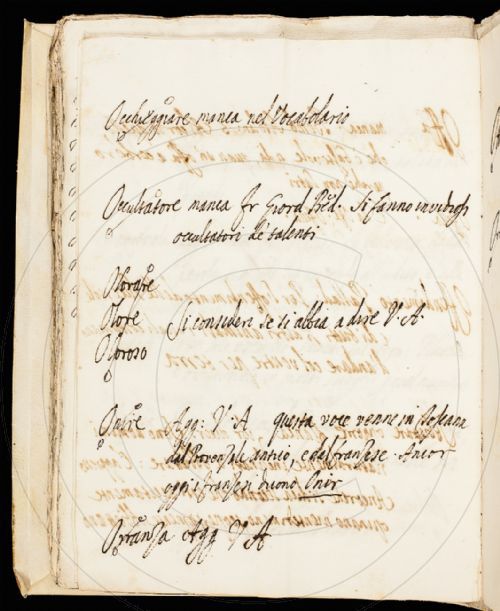 Occhieggiare manca nel Vocabolario
Occultatore manca fr Giord. Pred. Si fanno invidiosi
occultatori de talenti
Olorare
Olore Si consideri se si abbia a dire V. A.
Oloroso
Onire Agg: V. A questa voce venne in Toscana
dal Provenzale antico, e dal franzese. Ancor
oggi i franzesi dicono Onir
Orranza Agg V A